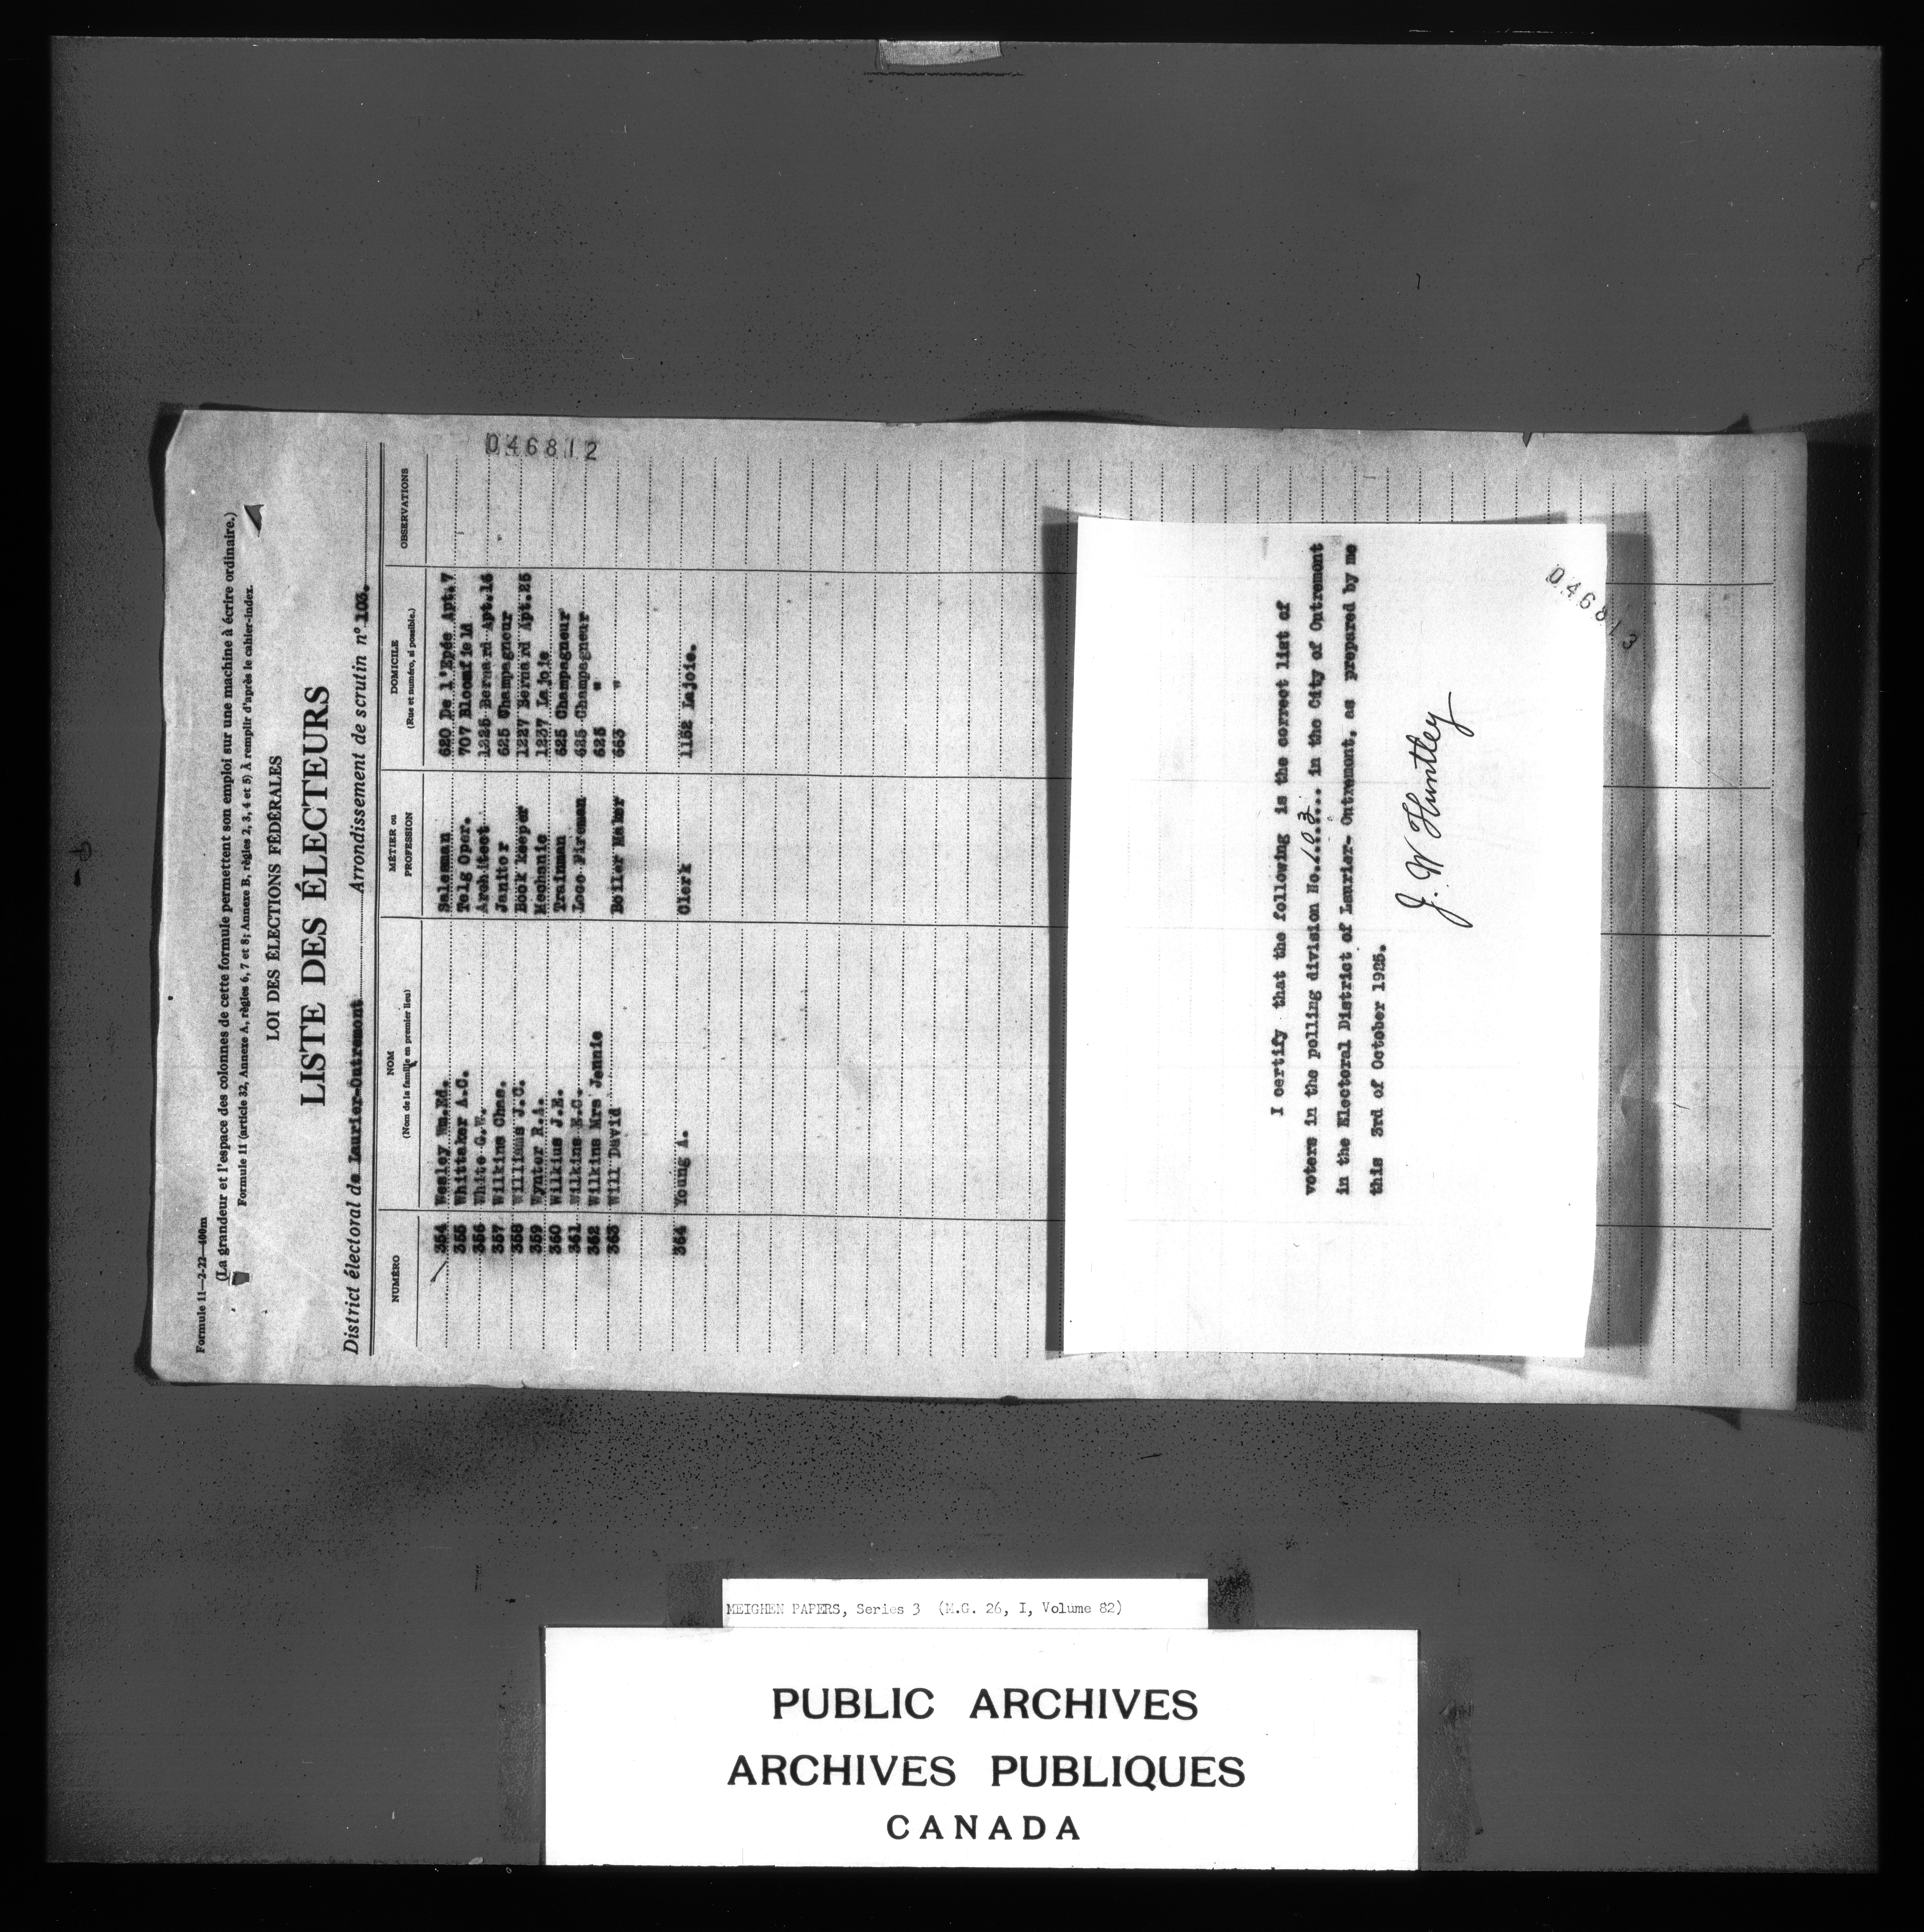 Formule 11—2-22—400m
(La grandeur et l'espace des colonnes de cette formule permettent son emploi sur une machine à écrire ordinaire.)
Formule 11 (article 32, Annexe A, règles 6, 7 et 8; Annexe B, règles 2, 3, 4 et 5) À remplir d'après le cahier-index.
LOI DES ÉLECTIONS FÉDÉRALES
LISTE DES ÉLECTEURS
District électoral de Laurier-Outremont Arrondissement de scrutin nº 103.
NUMÉRO NOM (Nom de la famille en premier lieu) MÉTIER ou PROFESSION DOMICILE (Rue et numéro, si possible.) OBSERVATIONS
046812
354 Wesley Wm.Ed. Salesman 620 De l'Epée Apt.7
355 Whittaker A.C. Telg Oper. 707 Bloomfield
356 White G.W. Architect 1225 Bernard Apt.16
357 Wilkins Chas. Janitor 625 Champagneur
358 Williams J.C. Book keeper 1227 Bernard Apt.25
359 Wynter R.A. Mechanic 1237 Lajoie
360 Wilkius J.E. Trainman 625 Champagneur
361 Wilkins E.C. Loco Firemen 625 Champagneur
362 Wilkins Mrs Jennie 625 "
363 Will David Boiler Maker 653 "
364 Young A. Clerk 1152 Lajoie.
I certify that the following is the correct list of
voters in the polling division No. 103 in the City of Outremont
in the Electoral District of Laurier- Outremont, as prepared by me
this 3rd of October 1925.
J. W Huntley
046813
MEIGHEN PAPERS, Series 3 (M.G. 26, I, Volume 82)
PUBLIC ARCHIVES
ARCHIVES PUBLIQUES
CANADA